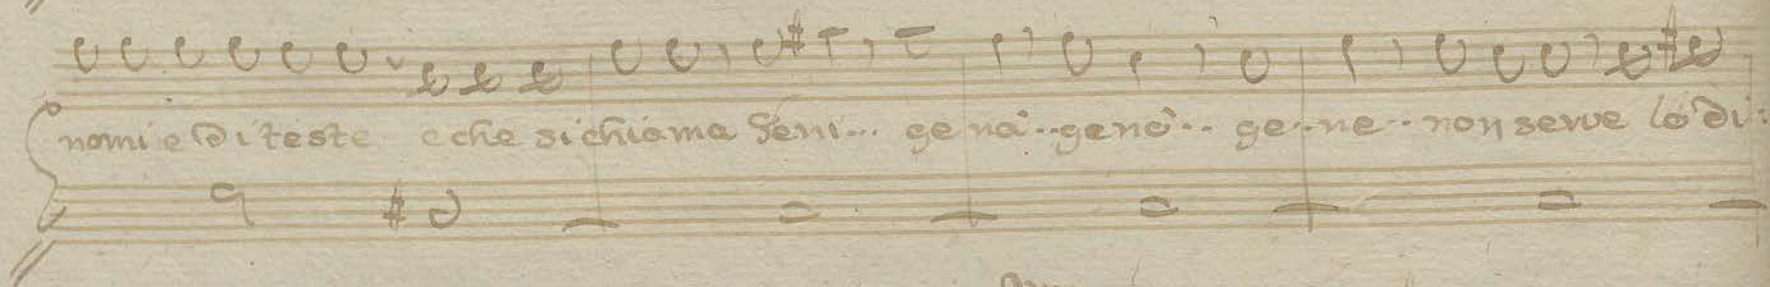 nomi e di teste e che si chiama Geni... ge na..geno.. ge..ne.. non serve lo di: